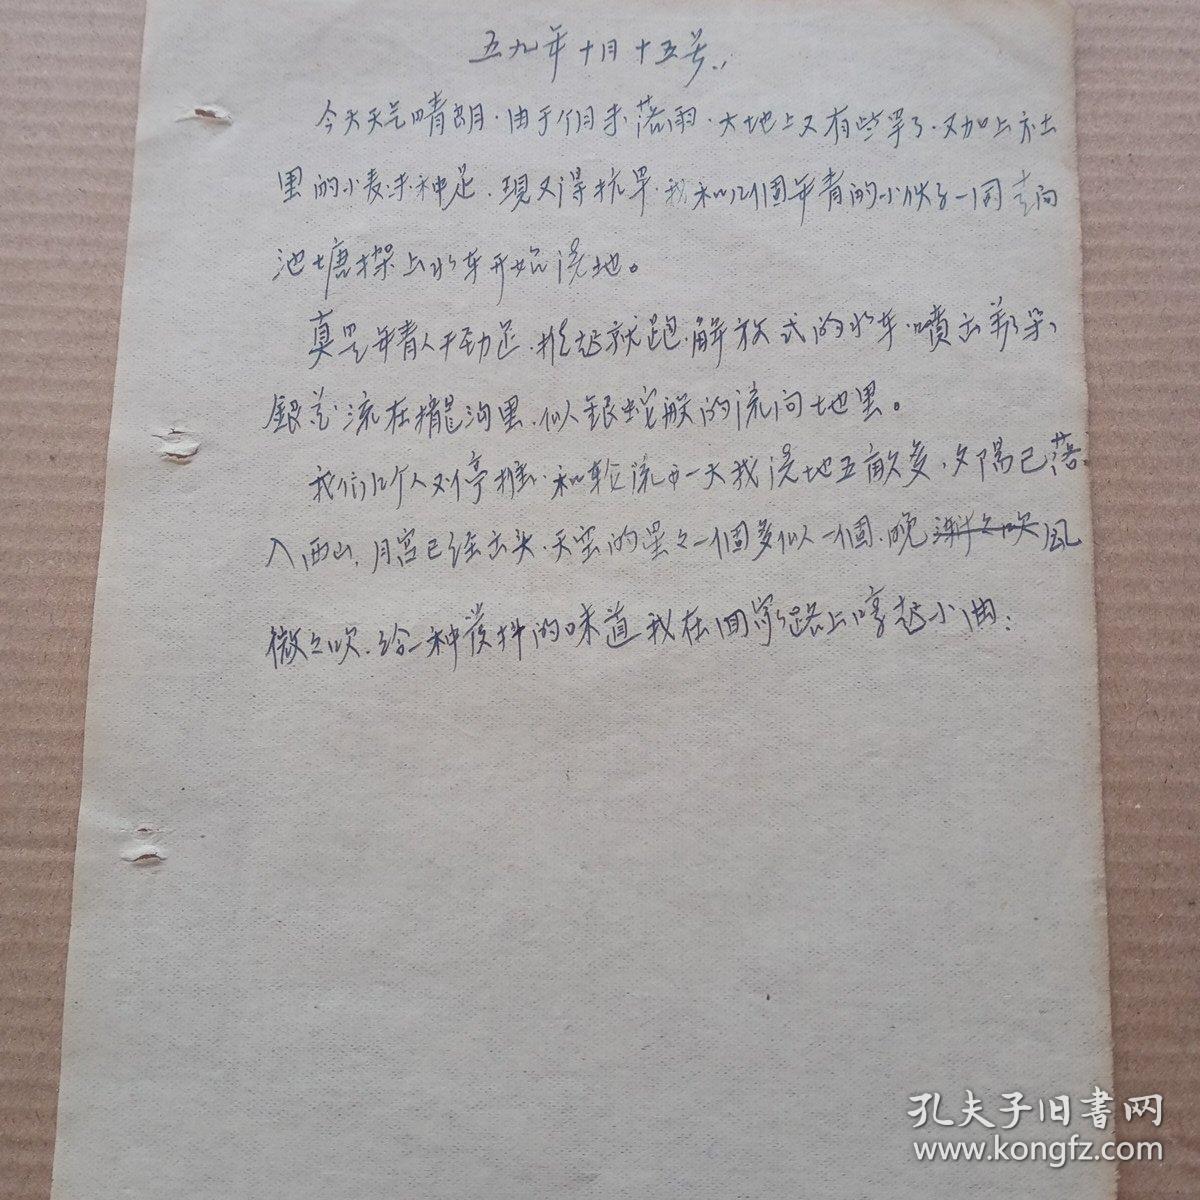 五九年十月十五号.,
今天天气晴朗.由于个月未落雨.大地上又有些旱了.又加上社
里的小麦未种足.現又得抗旱.我和几個年青的小伙子一同走向
池塘揬上水车开始浇地。
真是年青人干劲足.推起就跑.解放式的水车.喷出朵朵
銀花.流在攏沟里.似銀蛇般的流向地里。
我们几个人不停推.和轮流 一天我浇地五畝多.夕陽已落
入西山.月宫已经出头.天空的星々一個多似一個.晚风
微々吹.给一种发抖的味道我在回家路上哼起小曲:
孔夫子旧書网
www.kongfz.com